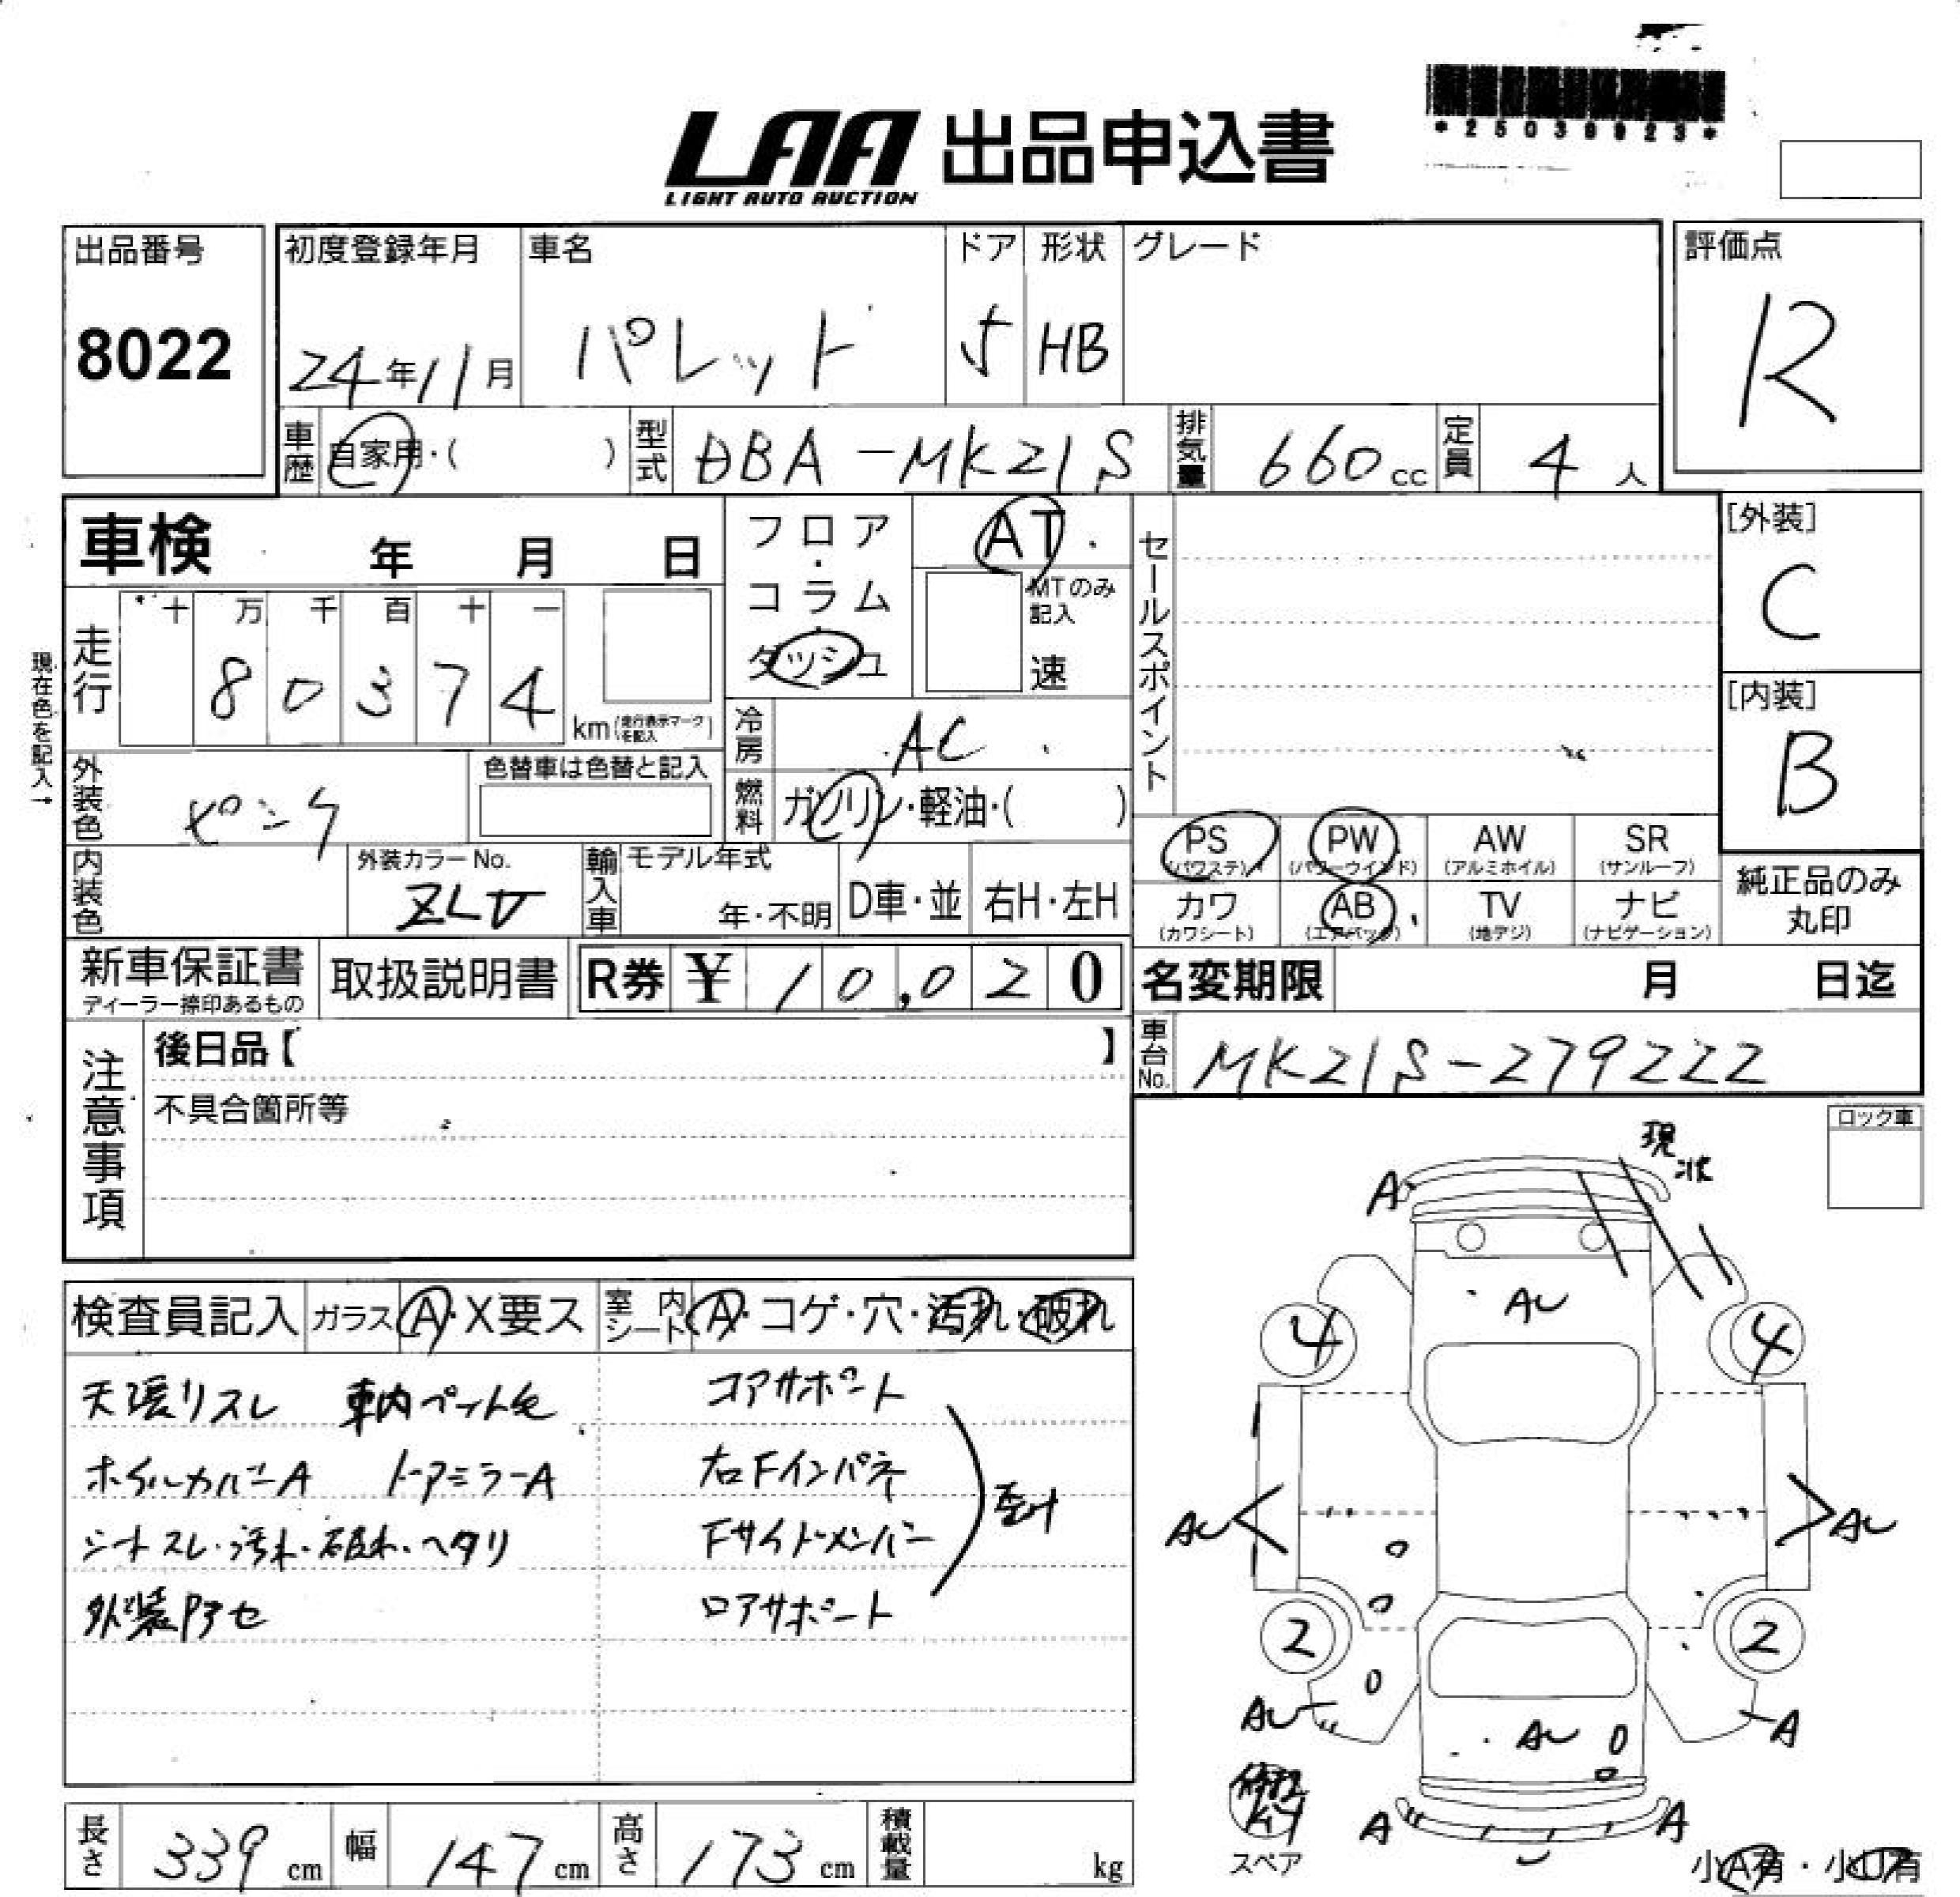 *25039923*
LAA 出品申込書
LIGHT AUTO AUCTION
出品番号 初度登録年月 車名 ドア 形状 グレード 評価点
8022 24年11月 パレット 5 HB R
車歴 自家用・( ) 型式 DBA-MK21S 排気量 660cc 定員 4人
車検 年 月 日
フロア・コラム・ダッシュ
AT
MTのみ記入
速
セールスポイント
[外装]
C
[内装]
B
現在色を記入→
走行 十 万 千 百 十 一
80374 km (走行表示マークを記入)
冷房 AC
外装色 ピンク 色替車は色替と記入
燃料 ガソリン・軽油・( )
PS (パワステ) PW (パワーウインド) AW (アルミホイル) SR (サンルーフ)
カワ (カワシート) AB (エアバッグ) TV (地デジ) ナビ (ナビゲーション)
純正品のみ丸印
内装色 外装カラーNo. ZLV 輸入車 モデル年式 年・不明 D車・並 右H・左H
新車保証書 ディーラー捺印あるもの 取扱説明書 R券 ¥ 10,020
名変期限 月 日迄
車台No. MK21S-279222
注意事項
後日品【 】
不具合箇所等
ロック車
現状
A
AU
4 4
検査員記入 ガラス A・X要ス 室内シート A・コゲ・穴・汚れ・破れ
天張リスレ 車内ペット毛 コアサポート
ホイルカバーA ドアミラーA 右Fインパネ
シートスレ・汚れ・破れ・ヘタリ Fサイドメンバー
歪サ
外装アセ ロアサポート
AU AU
2 2
AU A
AU
A A
スペア
小A有・小U有
長さ 339cm 幅 147cm 高さ 173cm 積載量 kg